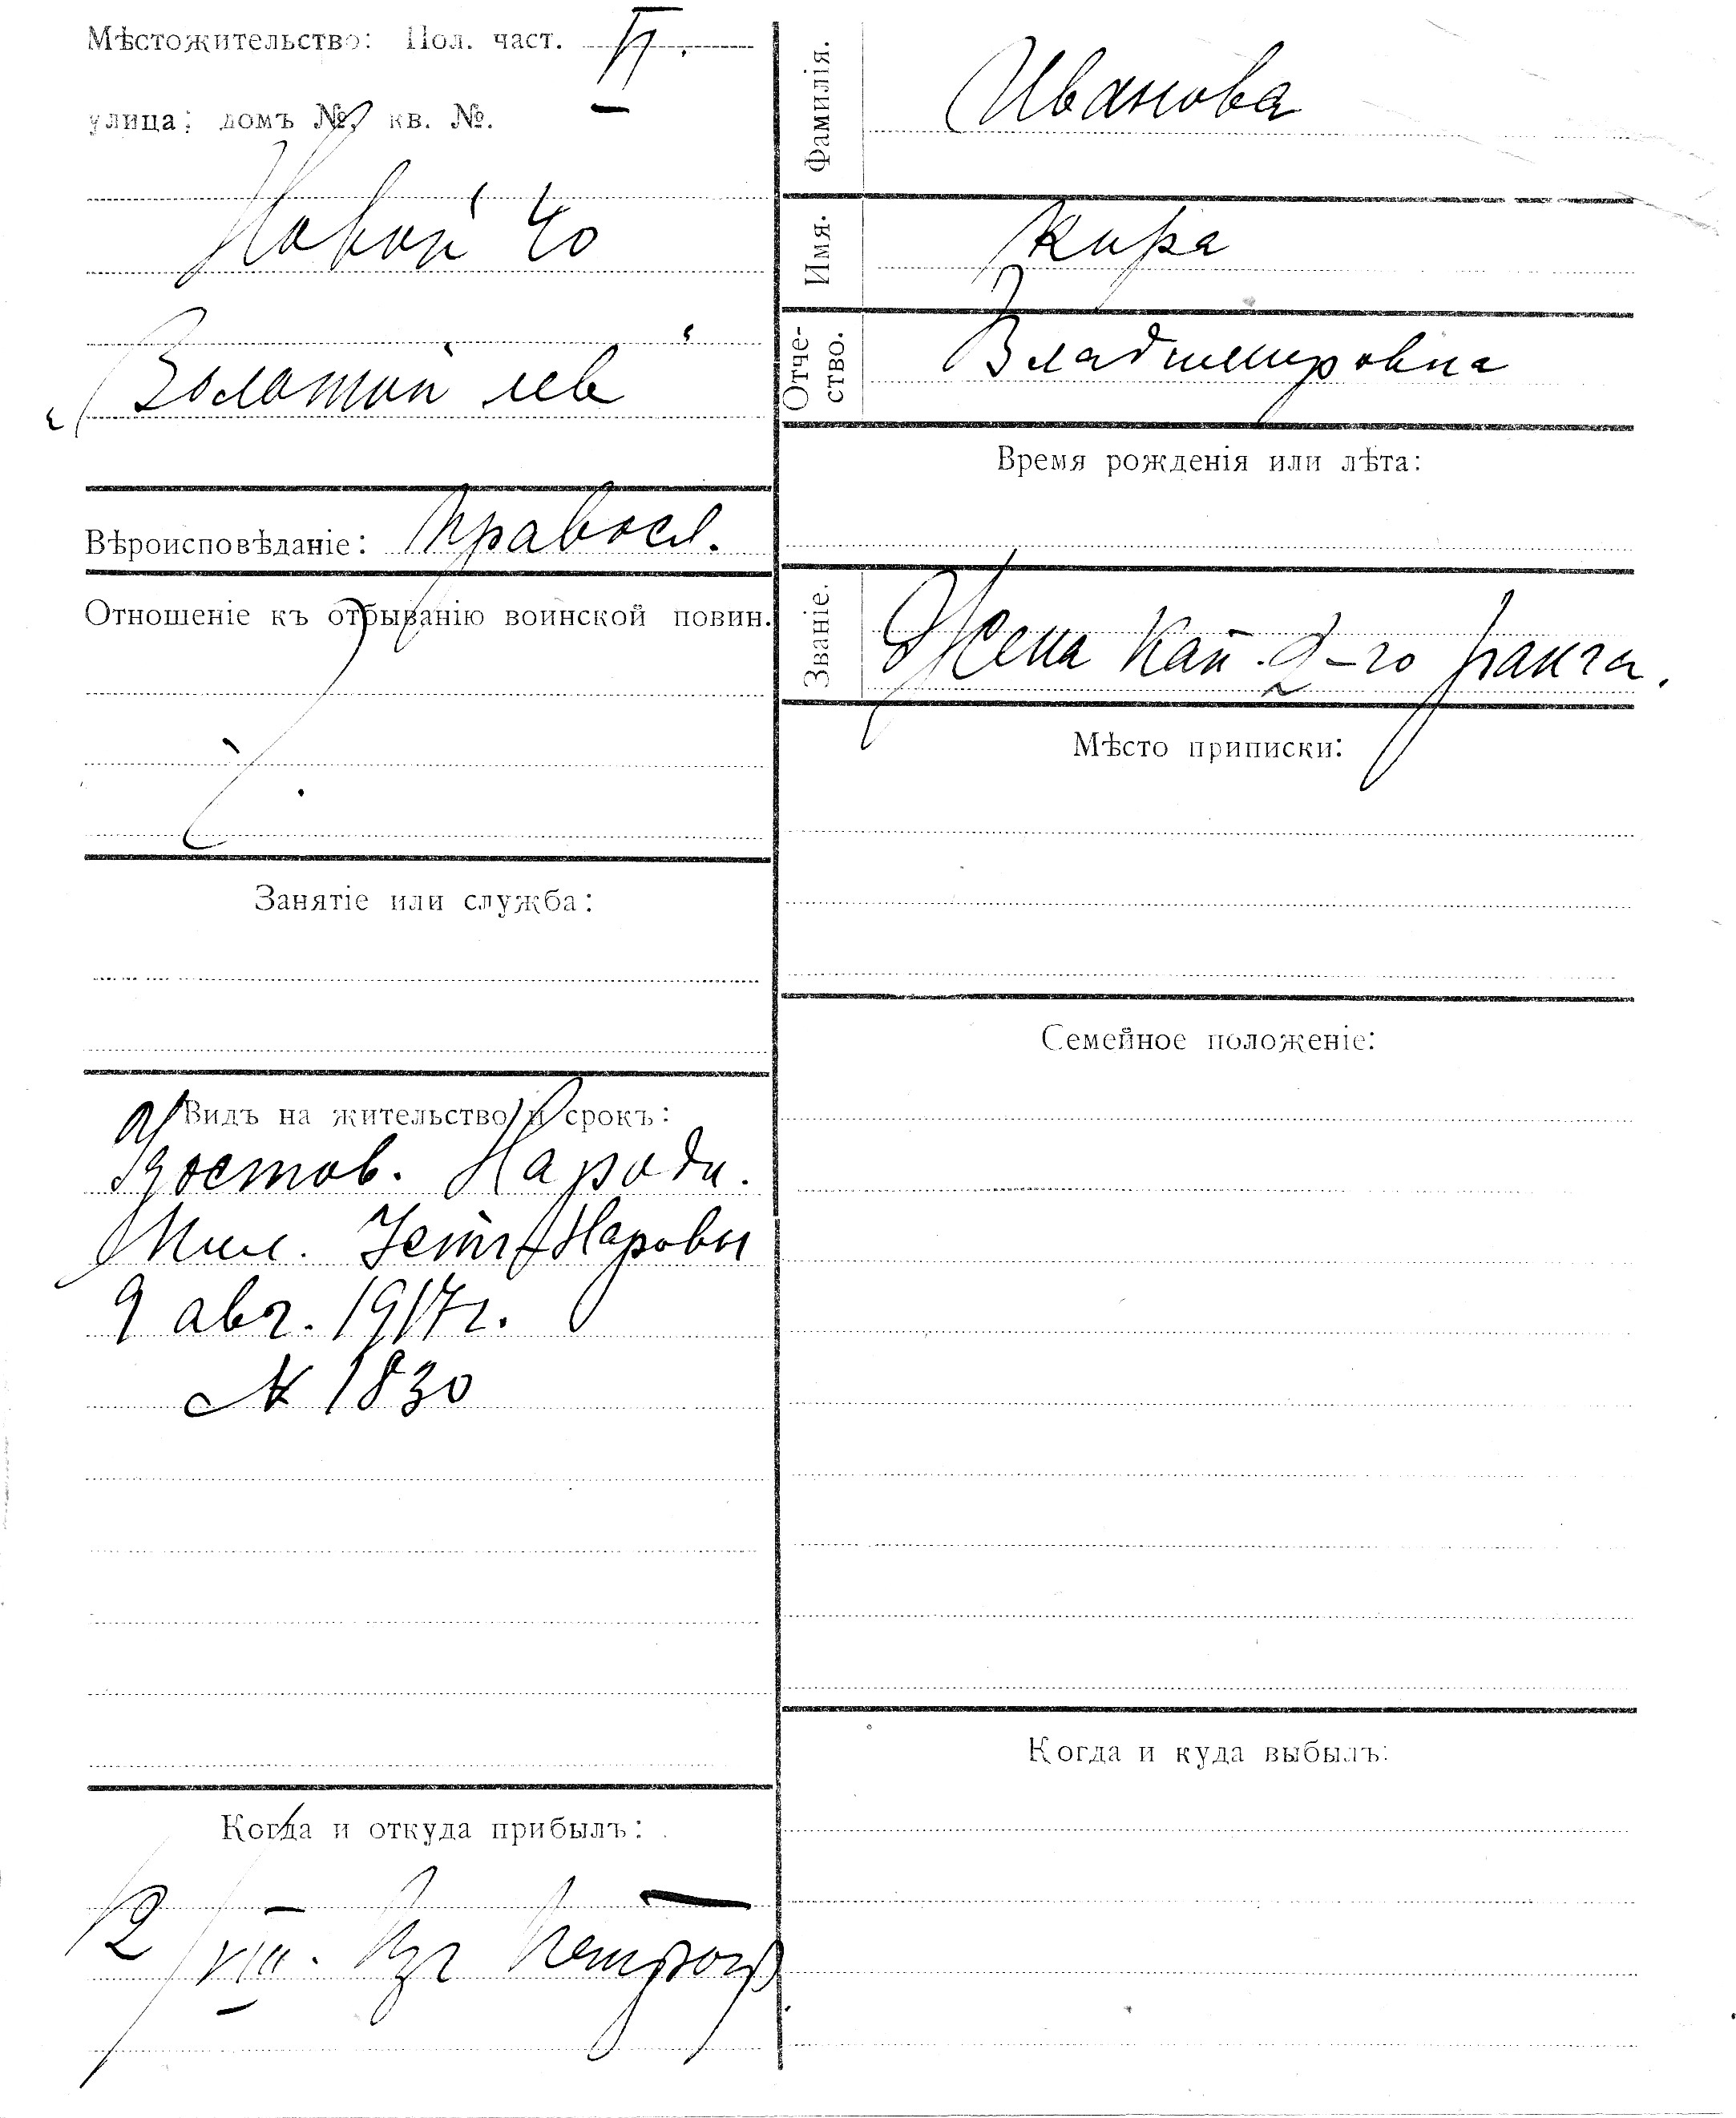 Мѣстожительство: Пол. част. II.
улица; домъ №, кв. №.
Новой 40
„Золотой лев“
Вѣроисповѣданіе: правосл.
Отношеніе къ отбыванію воинской повин.
Занятіе или служба:
Видъ на жительство и срокъ:
Удостов. Народн.
Мил. Устъ-Наровы
9 авг. 1917 г.
№ 1830
Когда и откуда прибылъ:
12/VIII. Из Петрогр.
Фамилія. Иванова
Имя. Кира
Отче-
ство. Владимировна
Время рожденія или лѣта:
Званіе. Жена кап. 2-го ранга.
Мѣсто приписки:
Семейное положеніе:
Когда и куда выбылъ: